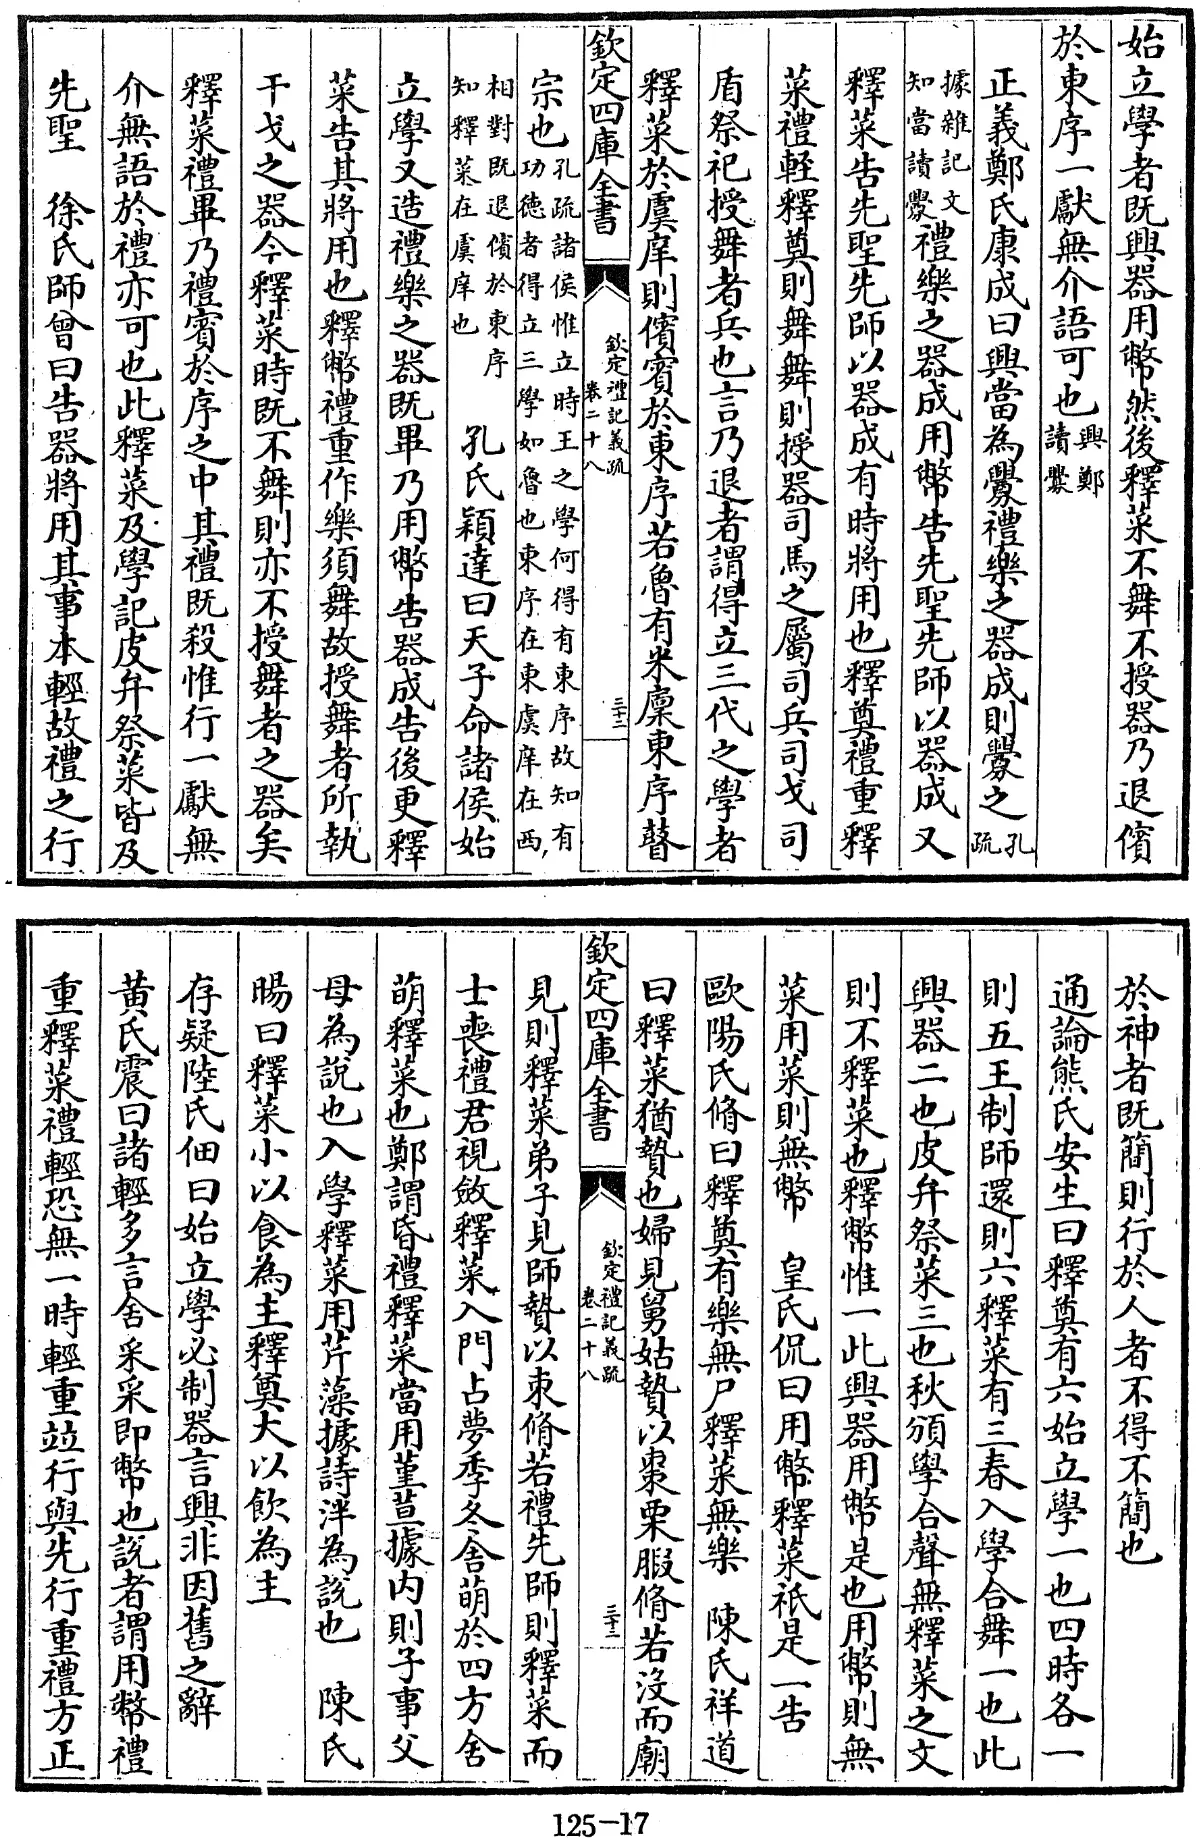 始立學者既興器用幣然後釋菜不舞不授器乃退儐
於東序一獻無介語可也興鄭讀釁
正義鄭氏康成曰興當為釁禮樂之器成則釁之孔疏
據雜記文知當讀釁禮樂之器成用幣告先聖先師以器成又
釋菜告先聖先師以器成有時將用也釋奠禮重釋
菜禮輕釋奠則舞舞則授器司馬之屬司兵司戈司
盾祭祀授舞者兵也言乃退者謂得立三代之學者
釋菜於虞庠則儐賓於東序若魯有米廩東序瞽
欽定四庫全書
欽定禮記義疏
卷二十八
三十二
宗也孔疏諸侯惟立時王之學何得有東序故知有功德者得立三學如魯也東序在東虞庠在西
相對既退儐於東序知釋菜在虞庠也 孔氏穎達曰天子命諸侯始
立學又造禮樂之器既畢乃用幣告器成告後更釋
菜告其將用也釋幣禮重作樂須舞故授舞者所執
干戈之器今釋菜時既不舞則亦不授舞者之器矣
釋菜禮畢乃禮賓於序之中其禮既殺惟行一獻無
介無語於禮亦可也此釋菜及學記皮弁祭菜皆及
先聖 徐氏師曾曰告器將用其事本輕故禮之行
於神者既簡則行於人者不得不簡也
通論熊氏安生曰釋奠有六始立學一也四時各一
則五王制師還則六釋菜有三春入學合舞一也此
興器二也皮弁祭菜三也秋頒學合聲無釋菜之文
則不釋菜也釋幣惟一此興器用幣是也用幣則無
菜用菜則無幣 皇氏侃曰用幣釋菜祇是一告
歐陽氏脩曰釋奠有樂無尸釋菜無樂 陳氏祥道
曰釋菜猶贄也婦見舅姑贄以棗栗腶脩若沒而廟
欽定四庫全書
欽定禮記義疏
卷二十八
三十三
見則釋菜弟子見師贄以束脩若禮先師則釋菜而
士喪禮君視斂釋菜入門占夢季冬舍萌於四方舍
萌釋菜也鄭謂昏禮釋菜當用堇荁據内則子事父
母為說也入學釋菜用芹藻據詩泮為說也 陳氏
暘曰釋菜小以食為主釋奠大以飲為主
存疑陸氏佃曰始立學必制器言興非因舊之辭
黃氏震曰諸輕多言舍采采即幣也說者謂用幣禮
重釋菜禮輕恐無一時輕重竝行與先行重禮方正
125-17